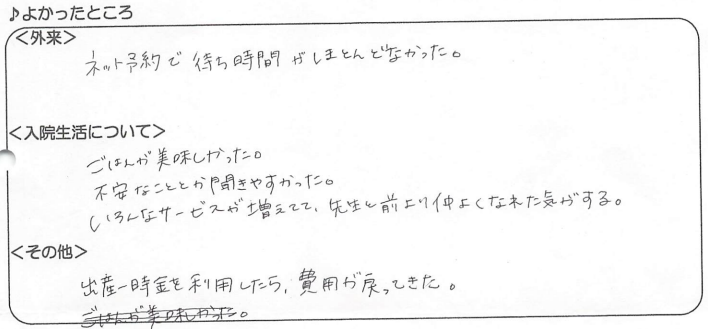 ♪よかったところ
<外来>
ネット予約で待ち時間がほとんどなかった。
<入院生活について>
ごはんが美味しかった。
不安なこととか聞きやすかった。
いろんなサービスが増えてて、先生と前より仲よくなれた気がする。
<その他>
出産一時金を利用したら、費用が戻ってきた。
ごはんが美味しかった。